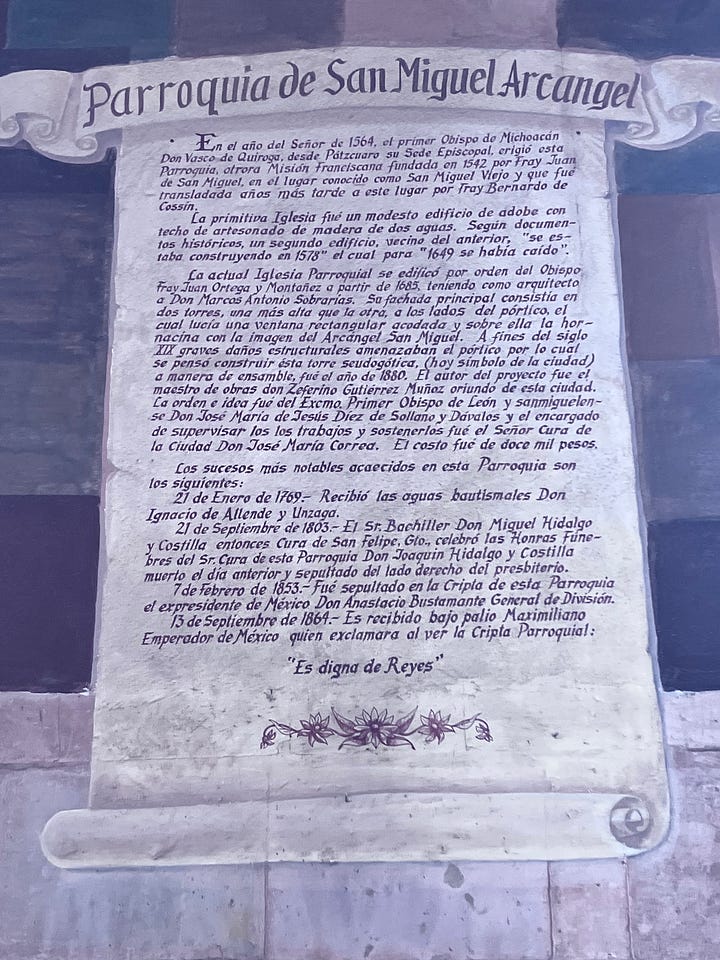 Parroquia de San Miguel Arcangel
En el año del Señor de 1564, el primer Obispo de Michoacán
Don Vasco de Quiroga, desde Pátzcuaro su Sede Episcopal, erigió esta
Parroquia, otrora Misión Franciscana fundada en 1542 por Fray Juan
de San Miguel, en el lugar conocido como San Miguel Viejo y que fué
transladada años más tarde a este lugar por Fray Bernardo de
Cossín.
La primitiva Iglesia fué un modesto edificio de adobe con
techo de artesonado de madera de dos aguas. Según documen-
tos históricos, un segundo edificio, vecino del anterior, "se es-
taba construyendo en 1578" el cual para "1649 se había caído".
La actual Iglesia Parroquial se edificó por orden del Obispo
Fray Juan Ortega y Montañez a partir de 1685, teniendo como arquitecto
a Don Marcos Antonio Sobrarías. Su fachada principal consistía en
dos torres, una más alta que la otra, a los lados del pórtico, el
cual lucía una ventana rectangular acodada y sobre ella la hor-
nacina con la imagen del Arcángel San Miguel. A fines del siglo
XIX graves daños estructurales amenazaban el pórtico por lo cual
se pensó construir ésta torre seudogótica, (hoy símbolo de la ciudad)
a manera de ensamble, fué el año de 1880. El autor del proyecto fue el
maestro de obras don Zeferino Gutiérrez Muñoz oriundo de esta ciudad.
La orden e idea fué del Excmo. Primer Obispo de León y sanmiguelen-
se Don José María de Jesús Díez de Sollano y Dávalos y el encargado
de supervisar los los trabajos y sostenerlos fué el Señor Cura de
la Ciudad Don José María Correa. El costo fué de doce mil pesos.
Los sucesos más notables acaecidos en esta Parroquia son
los siguientes:
21 de Enero de 1769.- Recibió las aguas bautismales Don
Ignacio de Allende y Unzaga.
21 de Septiembre de 1803.- El Sr. Bachiller Don Miguel Hidalgo
y Costilla entonces Cura de San Felipe, Gto., celebró las Honras Fúne-
bres del Sr. Cura de esta Parroquia Don Joaquín Hidalgo y Costilla
muerto el día anterior y sepultado del lado derecho del presbiterio.
7 de febrero de 1853.- Fué sepultado en la Cripta de esta Parroquia
el expresidente de México Don Anastacio Bustamante General de División.
13 de Septiembre de 1864.- Es recibido bajo palio Maximiliano
Emperador de México quien exclamara al ver la Cripta Parroquial:
"Es digna de Reyes"